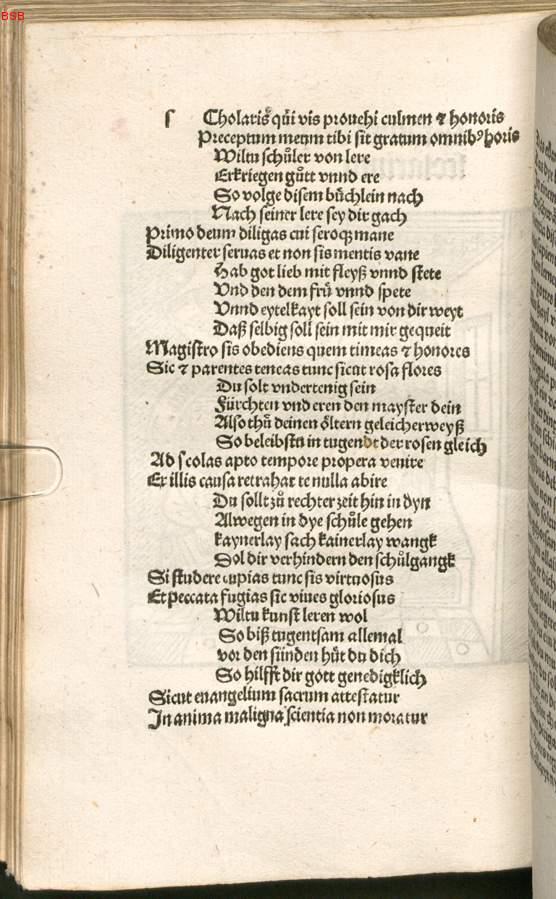 BSB
ſ Cholaris qui vis prouehi culmen ⁊ honoris
Preceptum meum tibi sit gratum omnibꝰ horis
Wiltu schůler von lere
Erkriegen gůtt vnnd ere
So volge disem bůchlein nach
Nach seiner lere sey dir gach
Primo deum diligas cui seroqꝫ mane
Diligenter seruas et non sis mentis vane
Hab got lieb mit fleyß vnnd stete
Vnd den dem frů vnnd spete
Vnnd eytelkayt soll sein von dir weyt
Daß selbig soll sein mit mir gequeit
Magistro sis obediens quem timeas ⁊ honores
Sic ⁊ parentes teneas tunc sicut rosa flores
Du solt vndertenig sein
Fürchten vnd eren den mayster dein
Also thů deinen öltern geleicherweyß
So beleibstu in tugendt der rosen gleich
Ad scolas apto tempore propera venire
Ex illis causa retrahat te nulla abire
Du sollt zů rechter zeit hin in dyn
Alwegen in dye schůle gehen
kaynerlay sach kainerlay wangk
Sol dir verhindern den schůlgangk
Si studere cupias tunc sis virtuosus
Et peccata fugias sic viues gloriosus
Wiltu kunst leren wol
So biß tugentsam allemal
vor den sünden hüt du dich
So hilfft dir gott genedigklich
Sicut euangelium sacrum attestatur
In anima maligna scientia non moratur